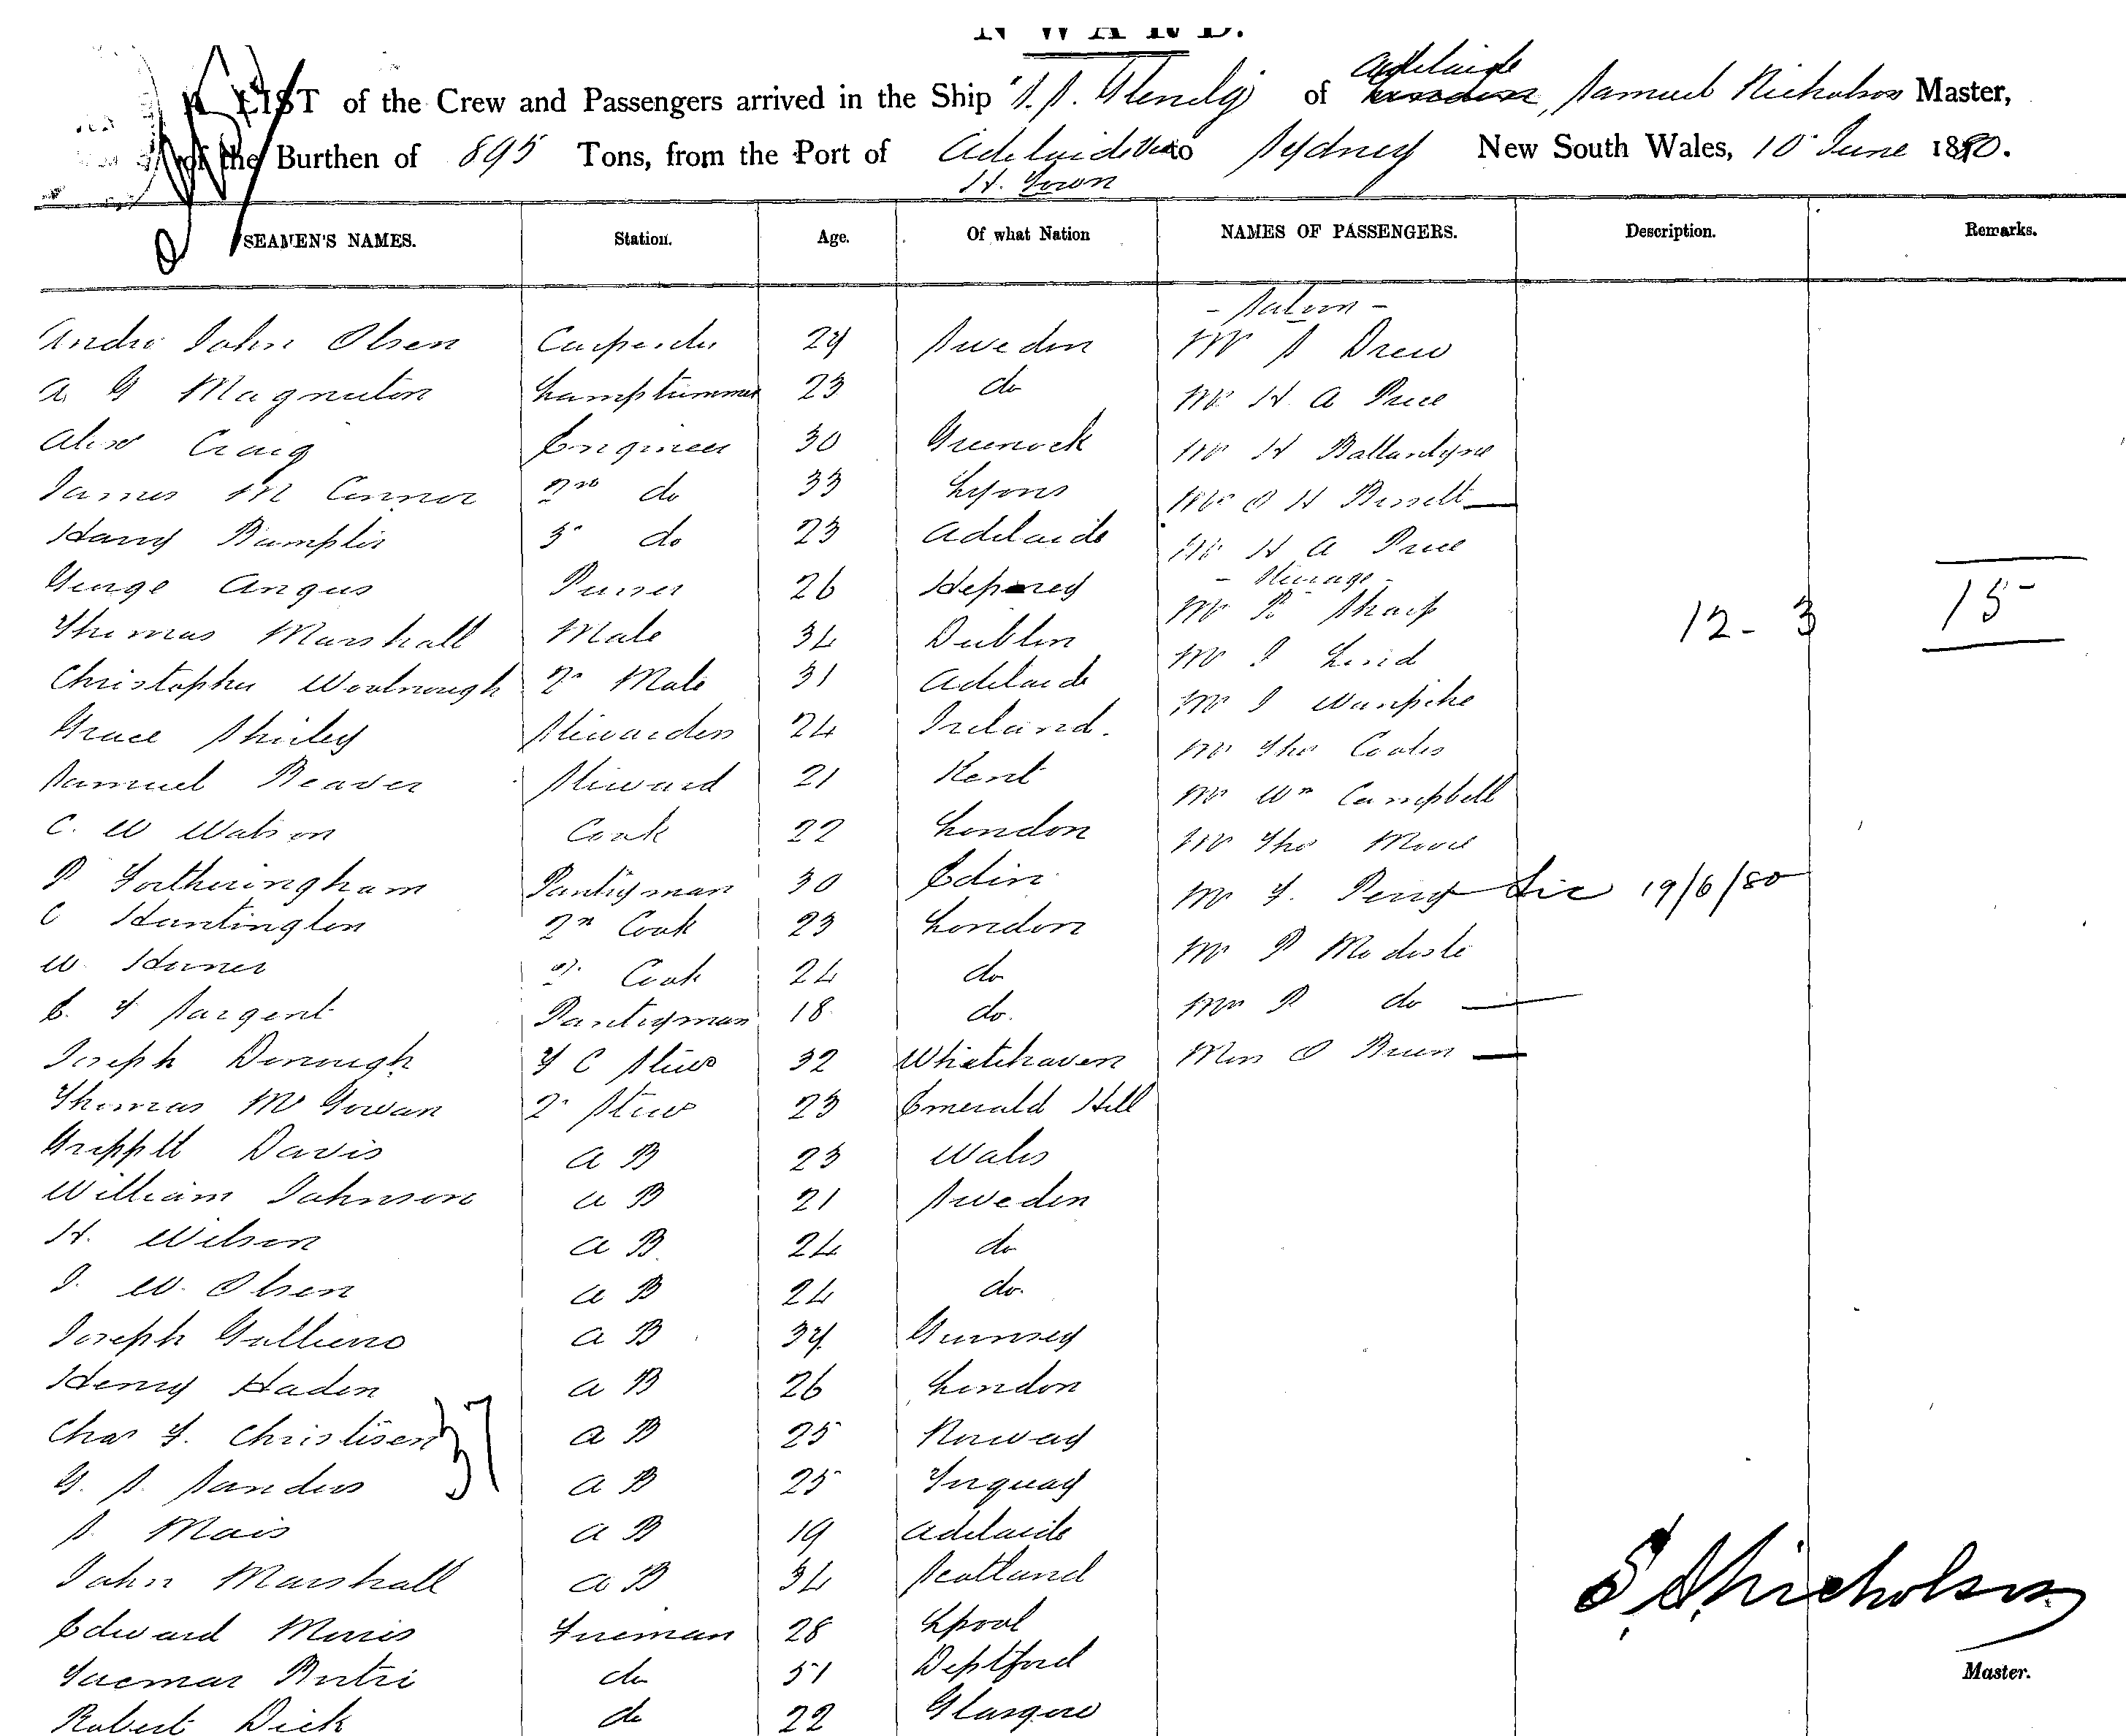 INWARD.
A LIST of the Crew and Passengers arrived in the Ship S.S. Glenelg of Adelaide, Samuel Nicholson Master,
of the Burthen of 895 Tons, from the Port of Adelaide via to Sydney New South Wales, 10 June 1880.
H. Town
SEAMEN'S NAMES. Station. Age. Of what Nation NAMES OF PASSENGERS. Description. Remarks.
- Saloon -
Andro John Olsen Carpenter 24 Sweden Mr S Drew
A G Magnuton Lamptrimmer 23 do Mr H A Price
Alexr Craig Engineer 30 Greenock Mr H Ballantyne
James M Connor 2nd do 33 Lyons Mrs O H Bissett
Harry Bumplis 3 do 23 Adelaide Mr H A Price
- Steerage -
George Angus Purser 26 Mr R Sharp
12 - 3 15
Thomas Marshall Mate 34 Dublin Mr J Lind
Christopher Woolnough 2n Mate 31 Adelaide Mr J
Grace Shirley Stewardess 24 Ireland. Mr Tho Coates
Samuel Beaver Steward 21 Kent Mr Wm Campbell
C. W Watson Cook 22 London Mr Tho
P Fortheringham Pantryman 30 Edin Mr F. Perry Lic 19/6/80
C Huntington 2n Cook 23 London Mr P Modeste
W. Horner 3. Cook 24 do Mrs P do
E. F Sargent Pantryman 18 do.
Joseph Donough F C Stewd 32 Whitehaven Miss O Brien
Thomas Mc Gowan 2 Stewd 23 Emerald Hill
Griffett Davis A B 23 Wales
William Johnson A B 21 Sweden
H. Wilson A B 24 do
J. W. Olsen A B 24 do.
Joseph Gallieno A B 34 Gurnsey
Henry Haden A B 26 London
Chas F. Christisen A B 25 Norway
37
G. S. Sanders A B 25 Torquay
S. Mais A B 19 Adelaide
John Marshall A B 34 Scotland
S Nicholson
Edward Morris Fireman 28 Lpool
do 51 Deptford
Master.
Robert Dick do 22 Glasgow